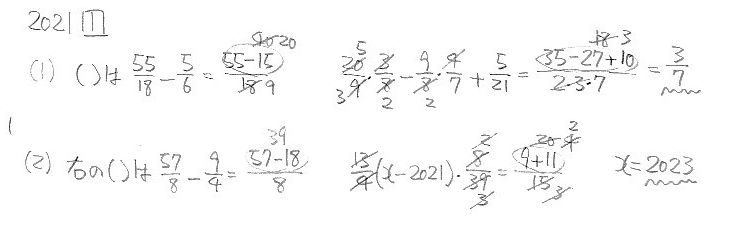 2021 1
(1) ( )は 55/18 - 5/6 = (55-15)/18 40 20 9 20/9・3/8 - 9/8・4/7 + 5/21 = (35-27+10)/(2・3・7) = 3/7 5 3 2 2 18 3
(2) 右の( )は 57/8 - 9/4 = (57-18)/8 39 13/9(x-2021)・8/39 = (9+11)/15 2 3 20 4 2 3 x=2023